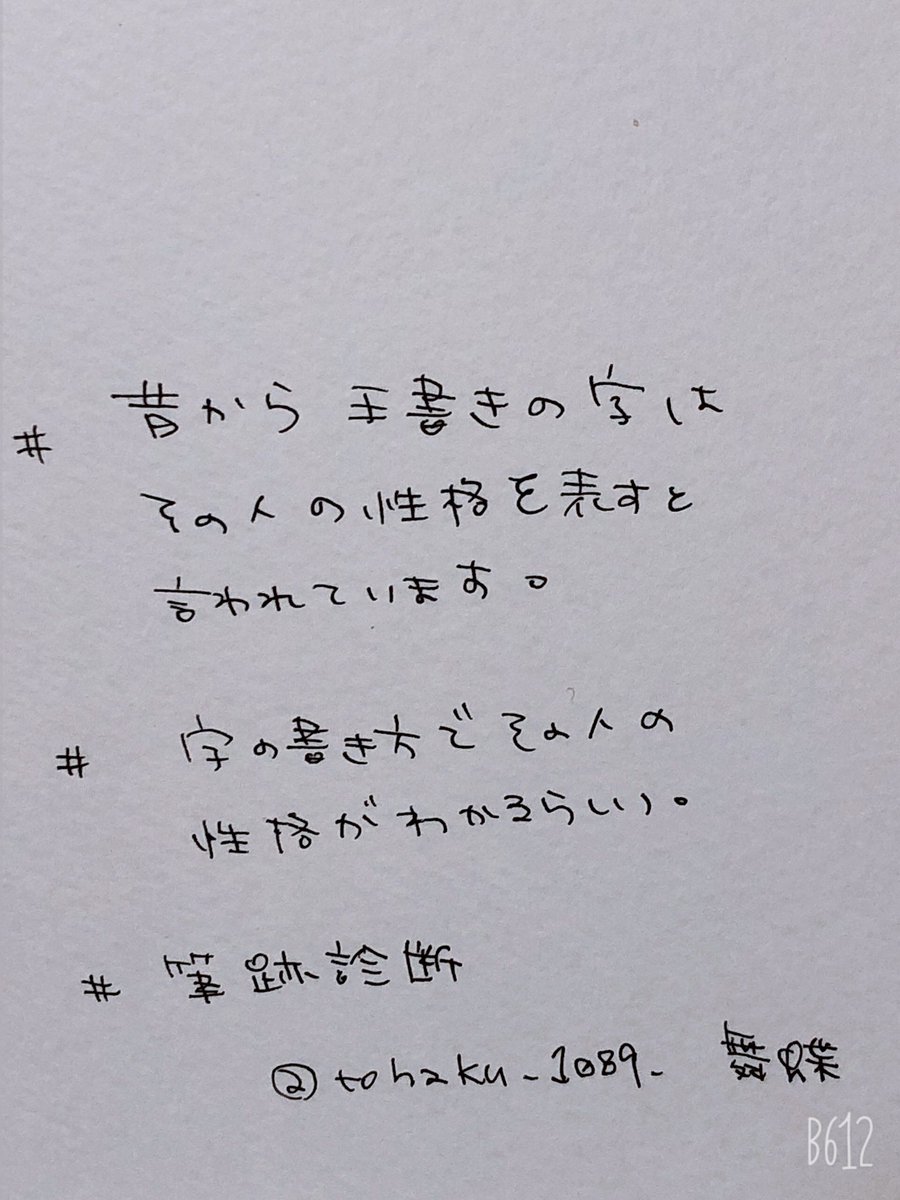 # 昔から手書きの字は
その人の性格を表すと
言われています。
# 字の書き方でその人の
性格がわかるらしい。
# 筆跡診断
@tohaku_1089_ 舞蝶
B612